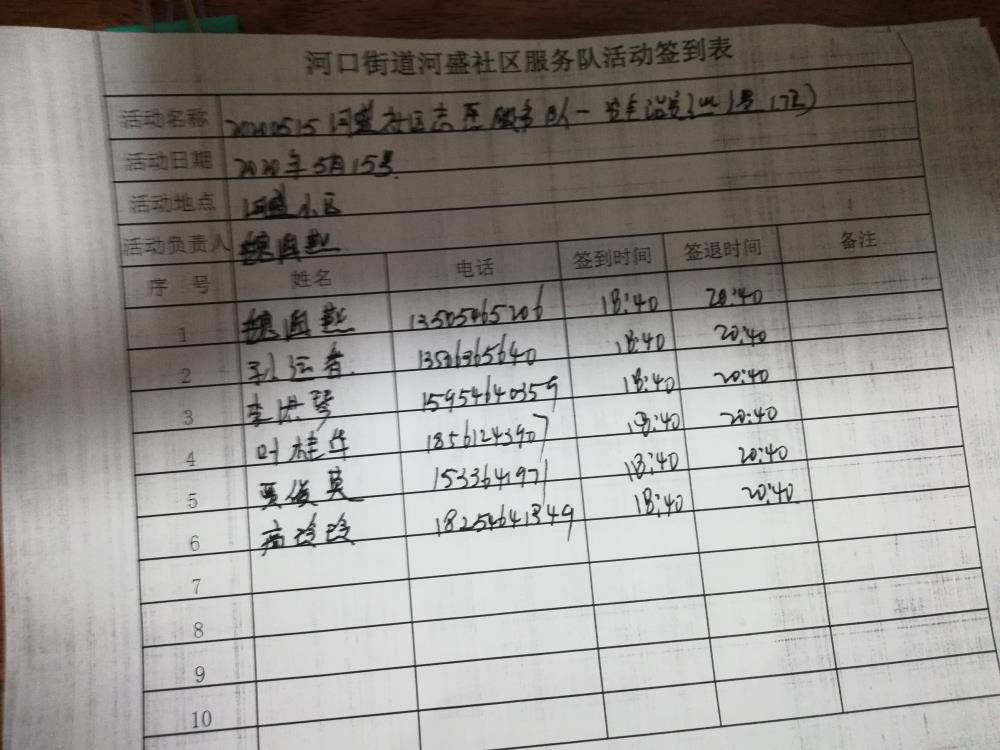 河口街道河盛社区服务队活动签到表
活动名称 20200515河盛社区志愿服务队一
活动日期 2020年5月15号
活动地点 河盛小区
活动负责人 魏国燕
序 号 姓名 电话 签到时间 签退时间 备注
1 魏国燕 13505465206 18:40 20:40
2 13506365640 18:40 20:40
3 李洪琴 15954640359 18:40 20:40
4 叶桂华 18561243907 18:40 20:40
5 贾俊英 1533641971 18:40 20:40
6 高玲玲 18254641349 18:40 20:40
7
8
9
10